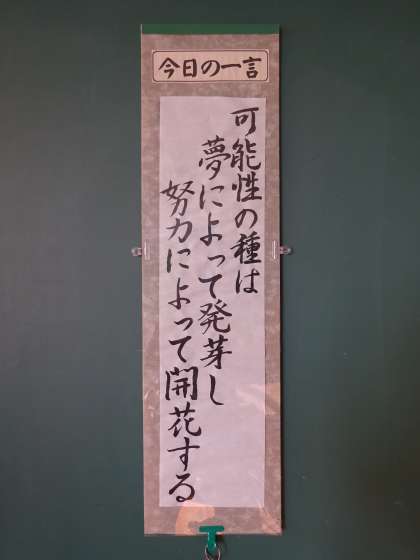 今日の一言
可能性の種は
夢によって発芽し
努力によって開花する